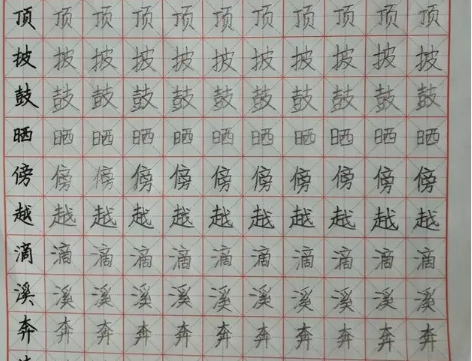 顶 顶 顶 顶 顶 顶 顶 顶 顶 顶 顶
披 披 披 披 披 披 披 披 披 披 披
鼓 鼓 鼓 鼓 鼓 鼓 鼓 鼓 鼓 鼓 鼓
晒 晒 晒 晒 晒 晒 晒 晒 晒 晒 晒
傍 傍 傍 傍 傍 傍 傍 傍 傍 傍 傍
越 越 越 越 越 越 越 越 越 越 越
滴 滴 滴 滴 滴 滴 滴 滴 滴 滴 滴
溪 溪 溪 溪 溪 溪 溪 溪 溪 溪 溪
奔 奔 奔 奔 奔 奔 奔 奔 奔 奔 奔